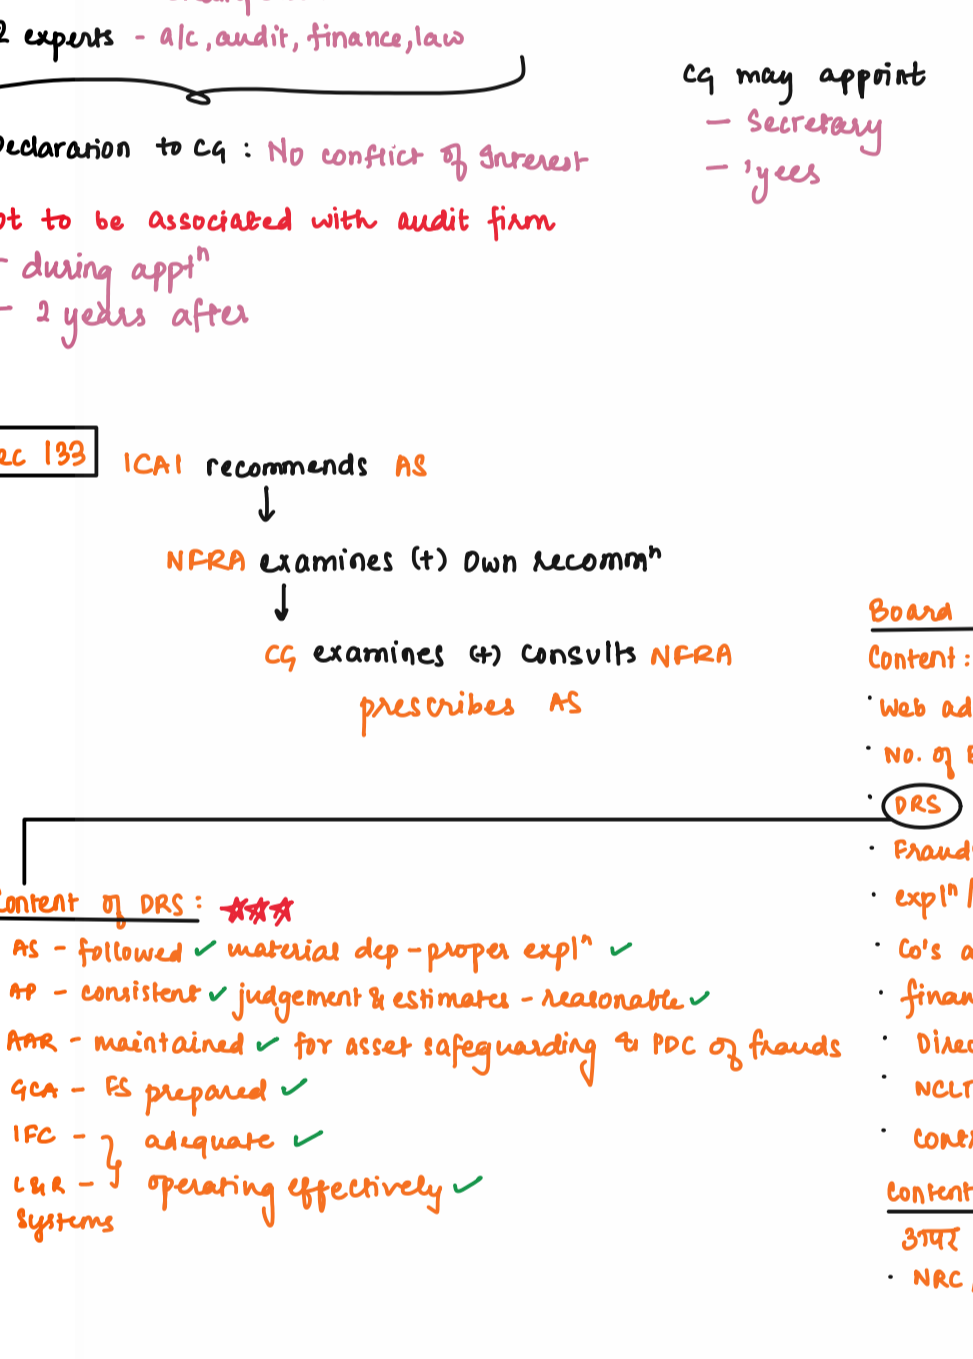 2 experts - a/c, audit, finance, law
Declaration to CG : No conflict of Interest
ot to be associated with audit firm
- during apptⁿ
- 2 years after
CG may appoint
- Secretary
- 'yees
ec 133
ICAI recommends AS
↓
NFRA examines (+) Own recommⁿ
↓
CG examines (+) consults NFRA
prescribes AS
Content of DRS : ***
AS - followed ✓ material dep - proper explⁿ ✓
AP - consistent ✓ judgement & estimates - reasonable ✓
AAR - maintained ✓ for asset safeguarding & PDC of frauds
GCA - FS prepared ✓
IFC - } adequate ✓
L&R - operating effectively ✓
Systems
Board
Content :
· Web ad
· No. of B
· DRS
· Fraud
· explⁿ /
· Co's a
· finan
· Direc
· NCLT
· cont
Content
ऊपर
· NRC,